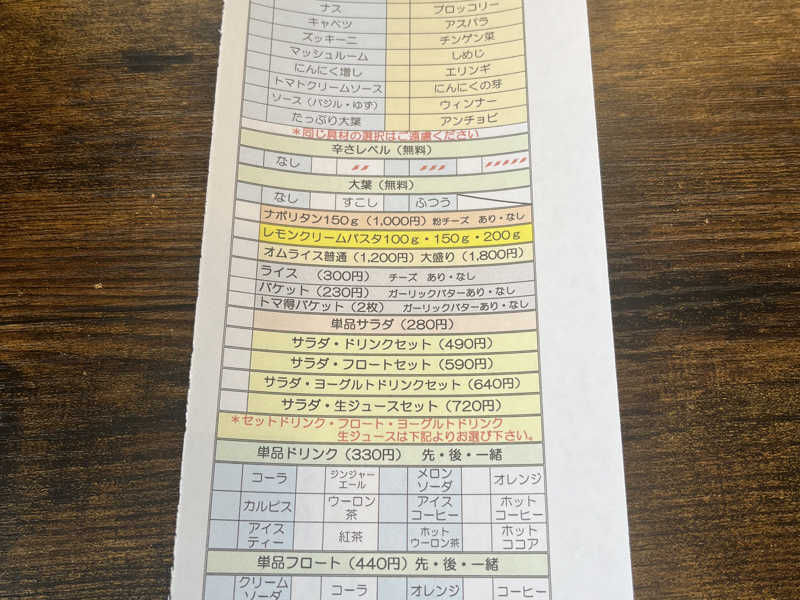 ナス ブロッコリー
キャベツ アスパラ
ズッキーニ チンゲン菜
マッシュルーム しめじ
にんにく増し エリンギ
トマトクリームソース にんにくの芽
ソース（バジル・ゆず） ウィンナー
たっぷり大葉 アンチョビ
＊同じ具材の選択はご遠慮ください
辛さレベル（無料）
なし
大葉（無料）
なし すこし ふつう
ナポリタン150ｇ（1,000円）粉チーズ あり・なし
レモンクリームパスタ100ｇ・150ｇ・200ｇ
オムライス普通（1,200円）大盛り（1,800円）
ライス （300円） チーズ あり・なし
バケット（230円） ガーリックバターあり・なし
トマ得バケット（2枚） ガーリックバターあり・なし
単品サラダ（280円）
サラダ・ドリンクセット（490円）
サラダ・フロートセット（590円）
サラダ・ヨーグルトドリンクセット（640円）
サラダ・生ジュースセット（720円）
＊セットドリンク・フロート・ヨーグルトドリンク
生ジュースは下記よりお選び下さい。
単品ドリンク（330円） 先・後・一緒
コーラ ジンジャーエール メロンソーダ オレンジ
カルピス ウーロン茶 アイスコーヒー ホットコーヒー
アイスティー 紅茶 ホットウーロン茶 ホットココア
単品フロート（440円）先・後・一緒
クリームソーダ コーラ オレンジ コーヒー